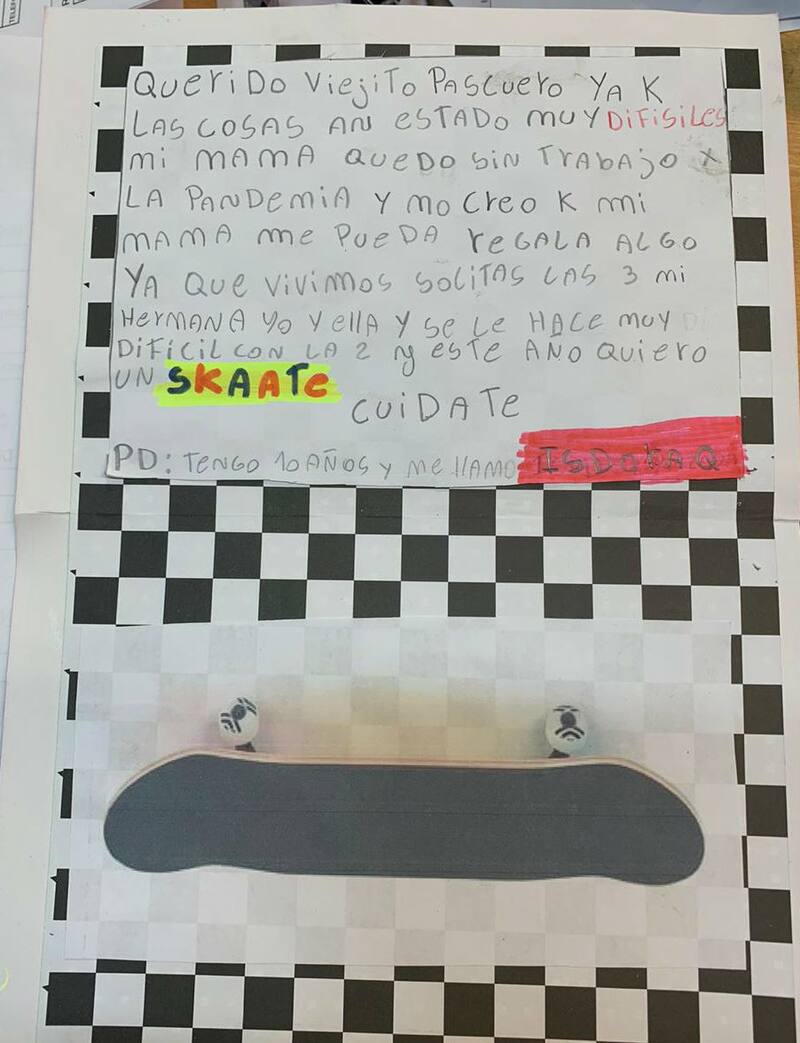 Querido Viejito Pascuero YA K
LAS COSAS AN ESTADO MUY DIFISILES
mi MAMA QUEDO SIN TRABAJO X
LA PANDEMIA Y NO CREO K mi
MAMA me PUEDA reGALA ALGO
YA QUE VIVIMOS SOLITAS LAS 3 mi
HERMANA YO Y ella Y SE LE HACE MUY Di
DIFICIL CON LA 2 Y ESTE AÑO QUIERO
UN SKAATe
CUIDATE
PD: TENGO 10 AÑOS Y me llAMO ISDORA Q